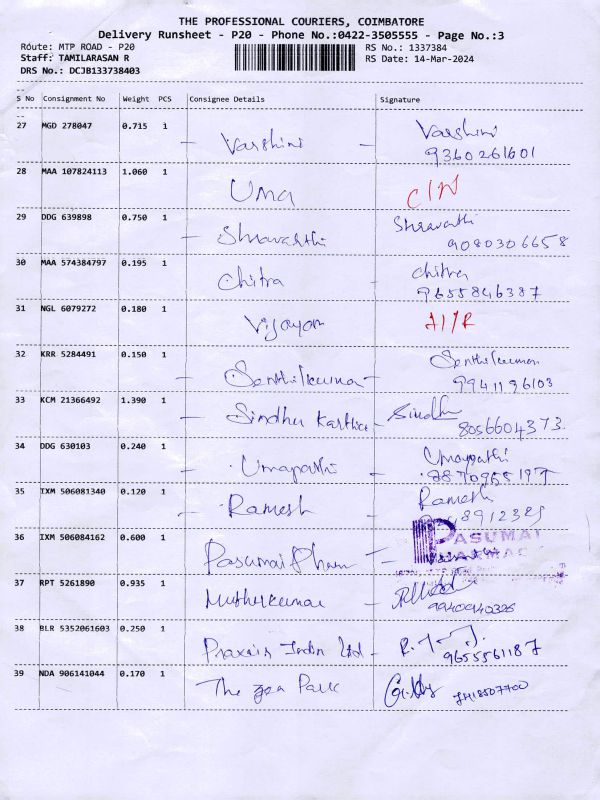 THE PROFESSIONAL COURIERS, COIMBATORE
Delivery Runsheet - P20 - Phone No.:0422-3505555 - Page No.:3
Route: MTP ROAD - P20 RS No.: 1337384
Staff: TAMILARASAN R RS Date: 14-Mar-2024
DRS No.: DCJB133738403
S No Consignment No Weight PCS Consignee Details Signature
27 MGD 278047 0.715 1 - Varshini - Varshini
9360261601
28 MAA 107824113 1.060 1 Uma
29 DDG 639898 0.750 1 - Shravarthi Shravathi
9080306658
30 MAA 574384797 0.195 1 - Chitra - Chitra
9655846387
31 NGL 6079272 0.180 1 Vijayan
32 KRR 5284491 0.150 1 - Senthilkumar - Senthilkumar
9941196103
33 KCM 21366492 1.390 1 - Sindhu Karthica - Sindhu
8056604373.
34 DDG 630103 0.240 1 - Umapathi - Umapathi
35 IXM 506081340 0.120 1 - Ramesh - Ramesh
36 IXM 506084162 0.600 1 Pasumai Pharm - PASUMAI
37 RPT 5261890 0.935 1 Muthukumar -
9940940326
38 BLR 5352061603 0.250 1 Praxair India Ltd -
9655561187
39 NDA 906141044 0.170 1 The Park